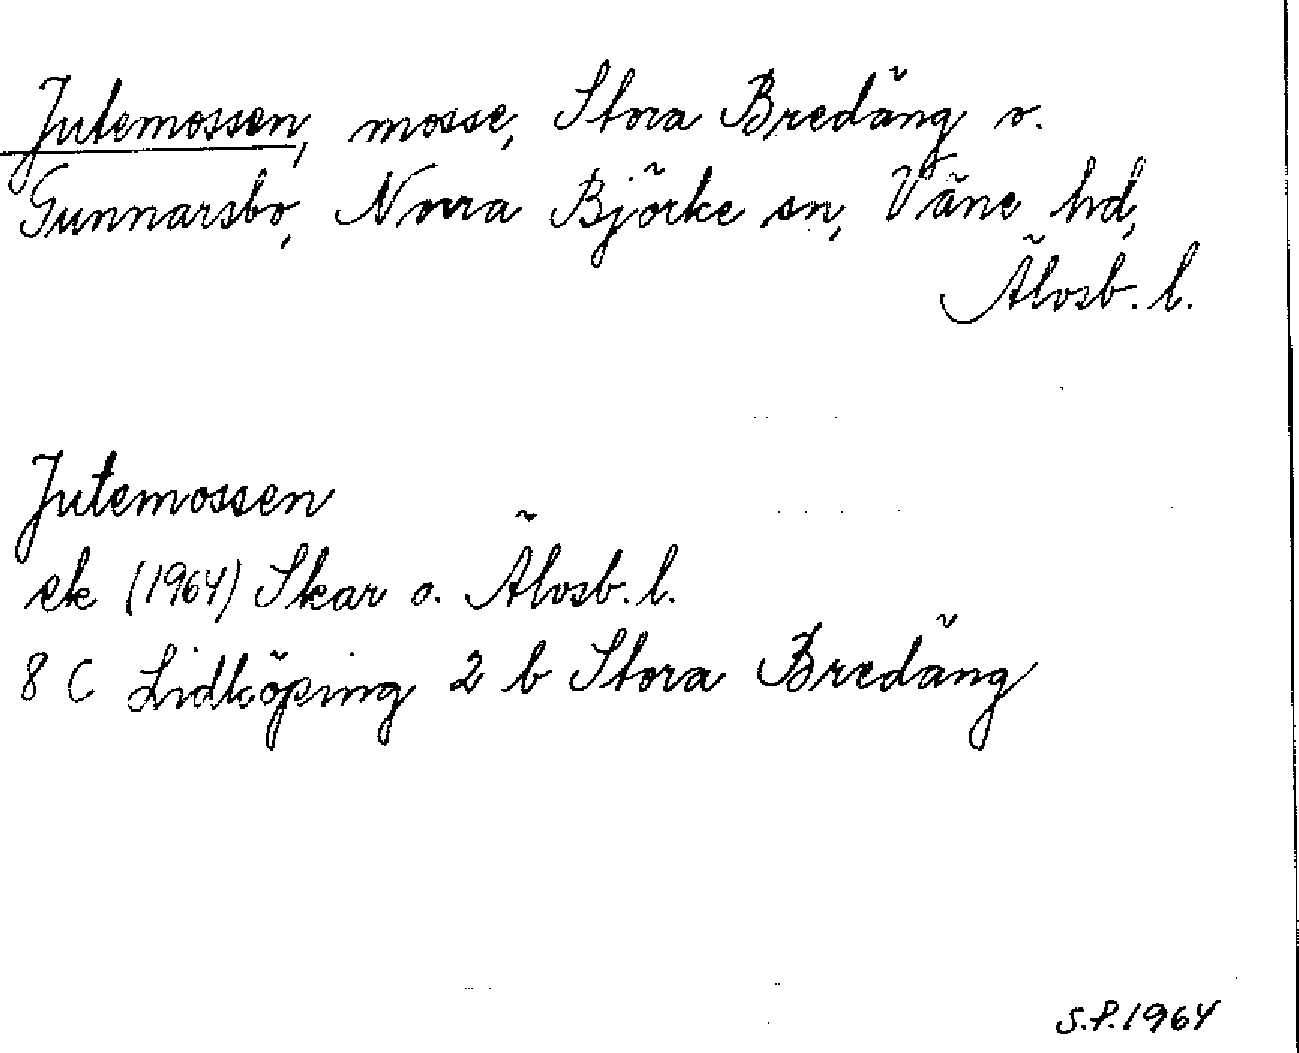 Jutemossen, mosse, Stora Bredäng o.
Gunnarsbo, Norra Björke sn, Väne hd,
Älvsb. l.
Jutemossen
ek (1964) Skar o. Älvsb. l.
8 C Lidköping 2 b Stora Bredäng
S.P. 1964